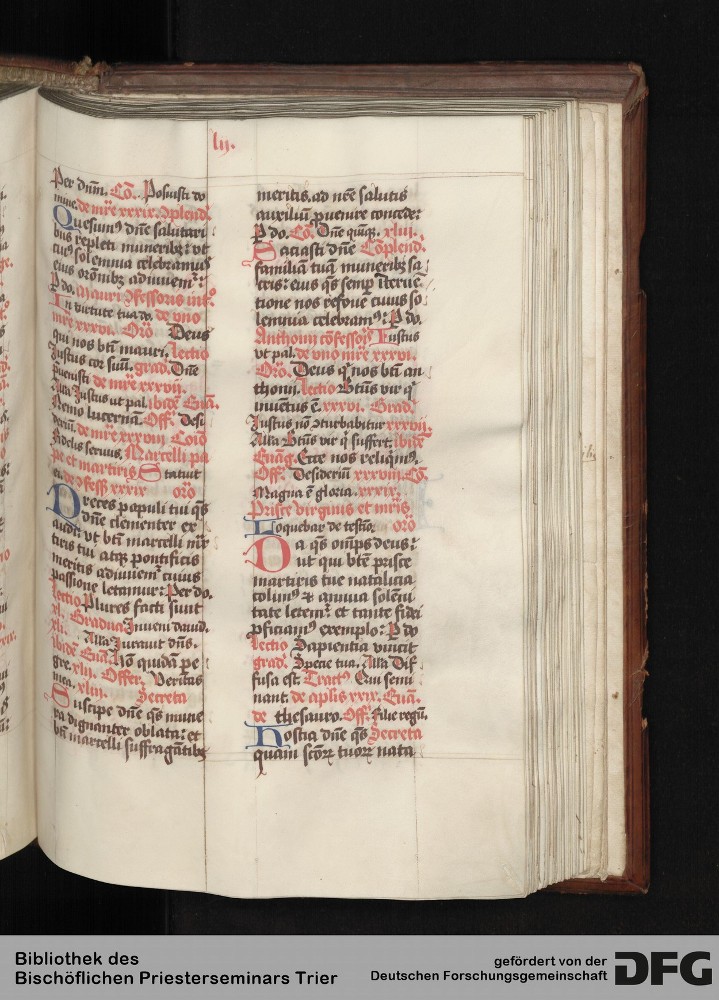 lij.
Per dnm. Cō. Posuisti do
mine. de mre xxxix. Oplend.
Quesum9 dñe salutari
bus repleti muneribꝫ: vt
cui9 solemnia celebramus
eius orōnibꝫ adiuuem̃:
P do. Mauri ꝯfessoris int°.
In virtute tua do. de vno
mre xxxvi. Orō. Deus
qui nos btī mauri. lectio
Justus cor suū. grad. Dñe
preuenisti de mre xxxvii.
Alla Justus ut pal. ibidē Euā.
Nemo lucernā. Off. Desi
deriū. de mre xxxviii Coīō
Fidelis seruus. Marcelli pa
pe et martiris Statuit
ei. de ꝯfess xxxix orō
Preces populi tui qs
dñe clementer ex
audi: vt btī marcelli mr̄
tiris tui atqꝫ pontificis
meritis adiuuem̃ cuius
passione letamur: Per do.
lectio Plures facti sunt
xl. Gradua Inueni dauid.
xli. Alla Jurauit dñs.
ibidē Euā. Hō quidā pe
gre. xlii. Offer. Veritas
mea. xliii. Secreta
Suscipe dñe qs mune
ra dignanter oblata: et
bī marcelli suffragātibꝫ
meritis. ad nr̄e salutis
auxiliū ꝓuenire concede:
P do. Cō. Dñe quīqꝫ. xliii.
Saciasti dñe Cōplend.
familiā tuā muneribꝫ sa
cris: eius qs semp īteruē
tione nos refoue cuius so
lemnia celebram9: P do.
Anthonij cōfessor̄ Iustus
vt pal. de vno mre xxxvi.
Orō. Deus q̄ nos btī an
thonij. lectio Btūs vir q̄
inuētus ē. xxxvi. Grad.
Justus nō ꝯturbabitur xxxvii.
Alla Btūs vir q̄ suffert. ibid.
Euāg. Ecce nos reliqim9.
Off. Desideriū xxxviii. Cō.
Magna ē gloria. xxxix.
Prisce virginis et mr̄is
Loquebar de testīo. orō
Da qs om̄ps deus:
ut qui btē prisce
martiris tue natalicia
colim9 ⁊ annua solēni
tate letem̃: et tante fidei
ꝓficiam9 exemplo: P do
lectio Sapientia vincit
grad. Specie tua. Alla Dif
fusa est Tract9 Qui semi
nant. de aplis xxix. Euā.
de thesauro. Off. Filie regū.
Hostia dñe qs Secreta
quam scōꝝ tuoꝝ nata
Bibliothek des
Bischöflichen Priesterseminars Trier
gefördert von der
Deutschen Forschungsgemeinschaft
DFG